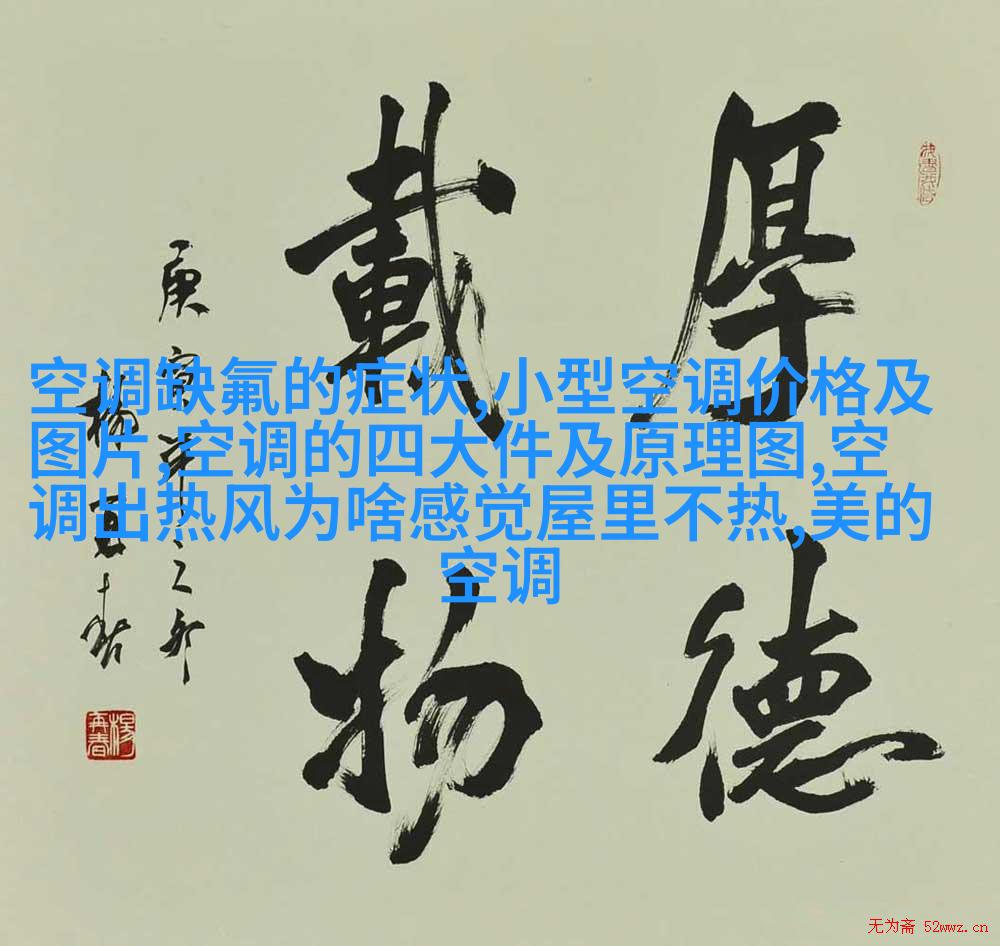 厚德
載物
庚寅年之夏
楊再春
楊再春
空调缺氟的症状,小型空调价格及
图片,空调的四大件及原理图,空
调出热风为啥感觉屋里不热,美的
空调
无为斋 52wwz.cn